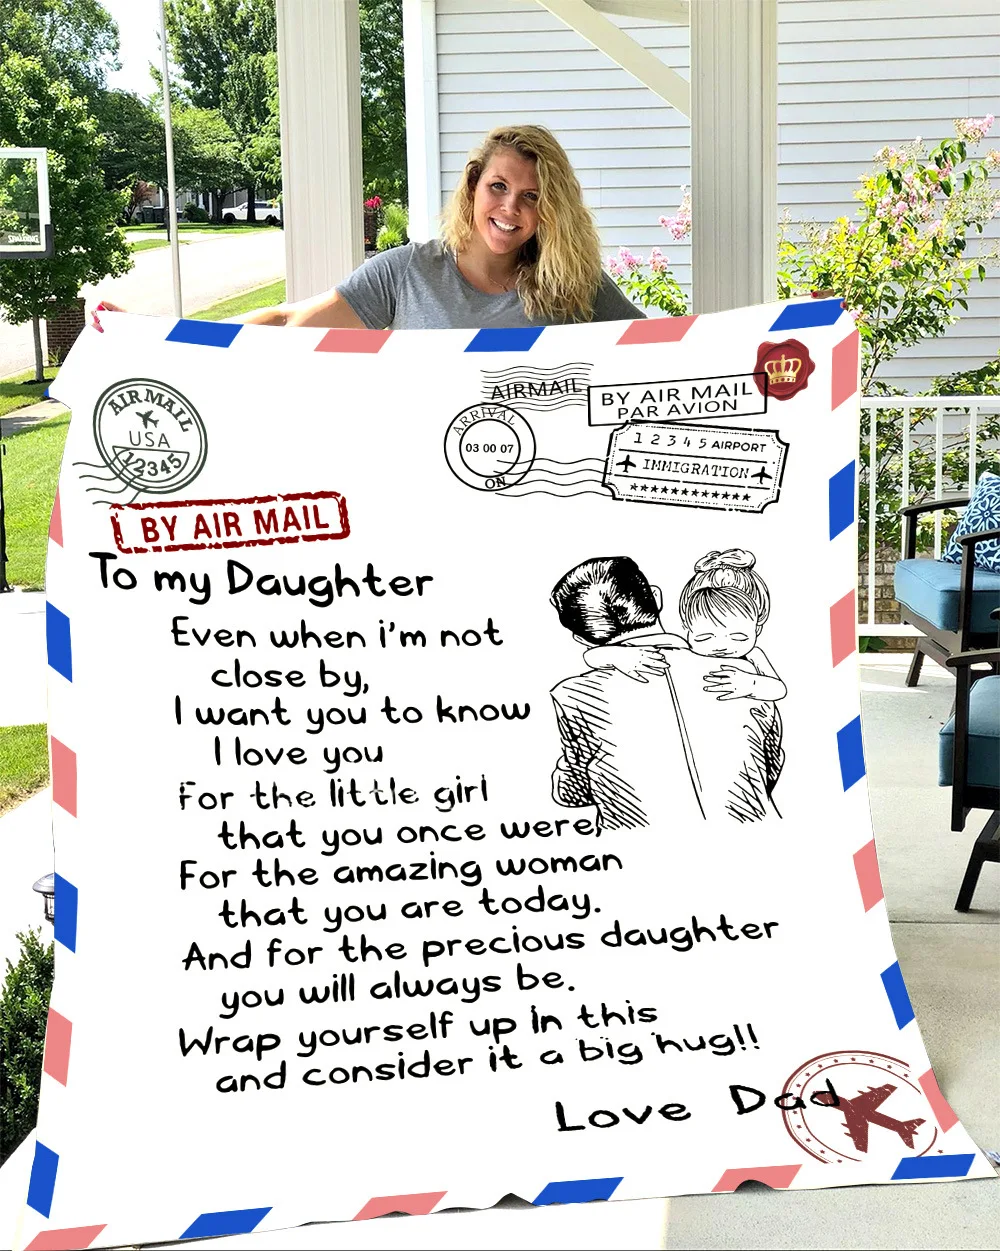 AIRMAIL
USA
12345
BY AIR MAIL
AIRMAIL
ARRIVAL
03 00 07
ON
BY AIR MAIL
PAR AVION
1 2 3 4 5 AIRPORT
IMMIGRATION
To my Daughter
Even when i'm not
close by,
I want you to know
I love you
For the little girl
that you once were,
For the amazing woman
that you are today.
And for the precious daughter
you will always be.
Wrap yourself up in this
and consider it a big hug!!
Love Dad